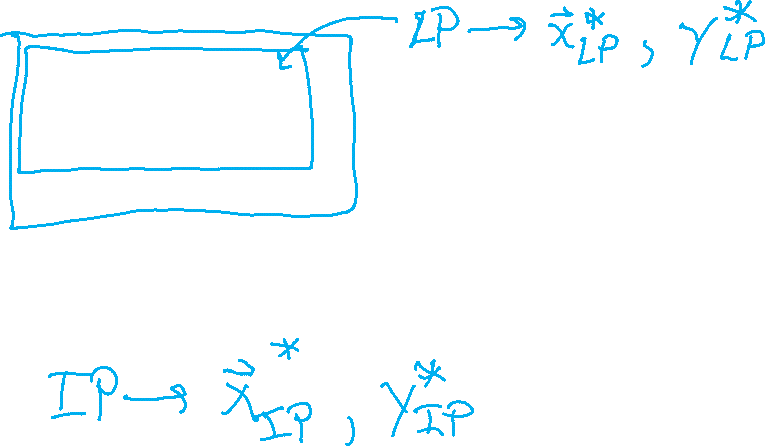 LP → x⃗*LP, γ*LP
IP → x⃗*IP, γ*IP